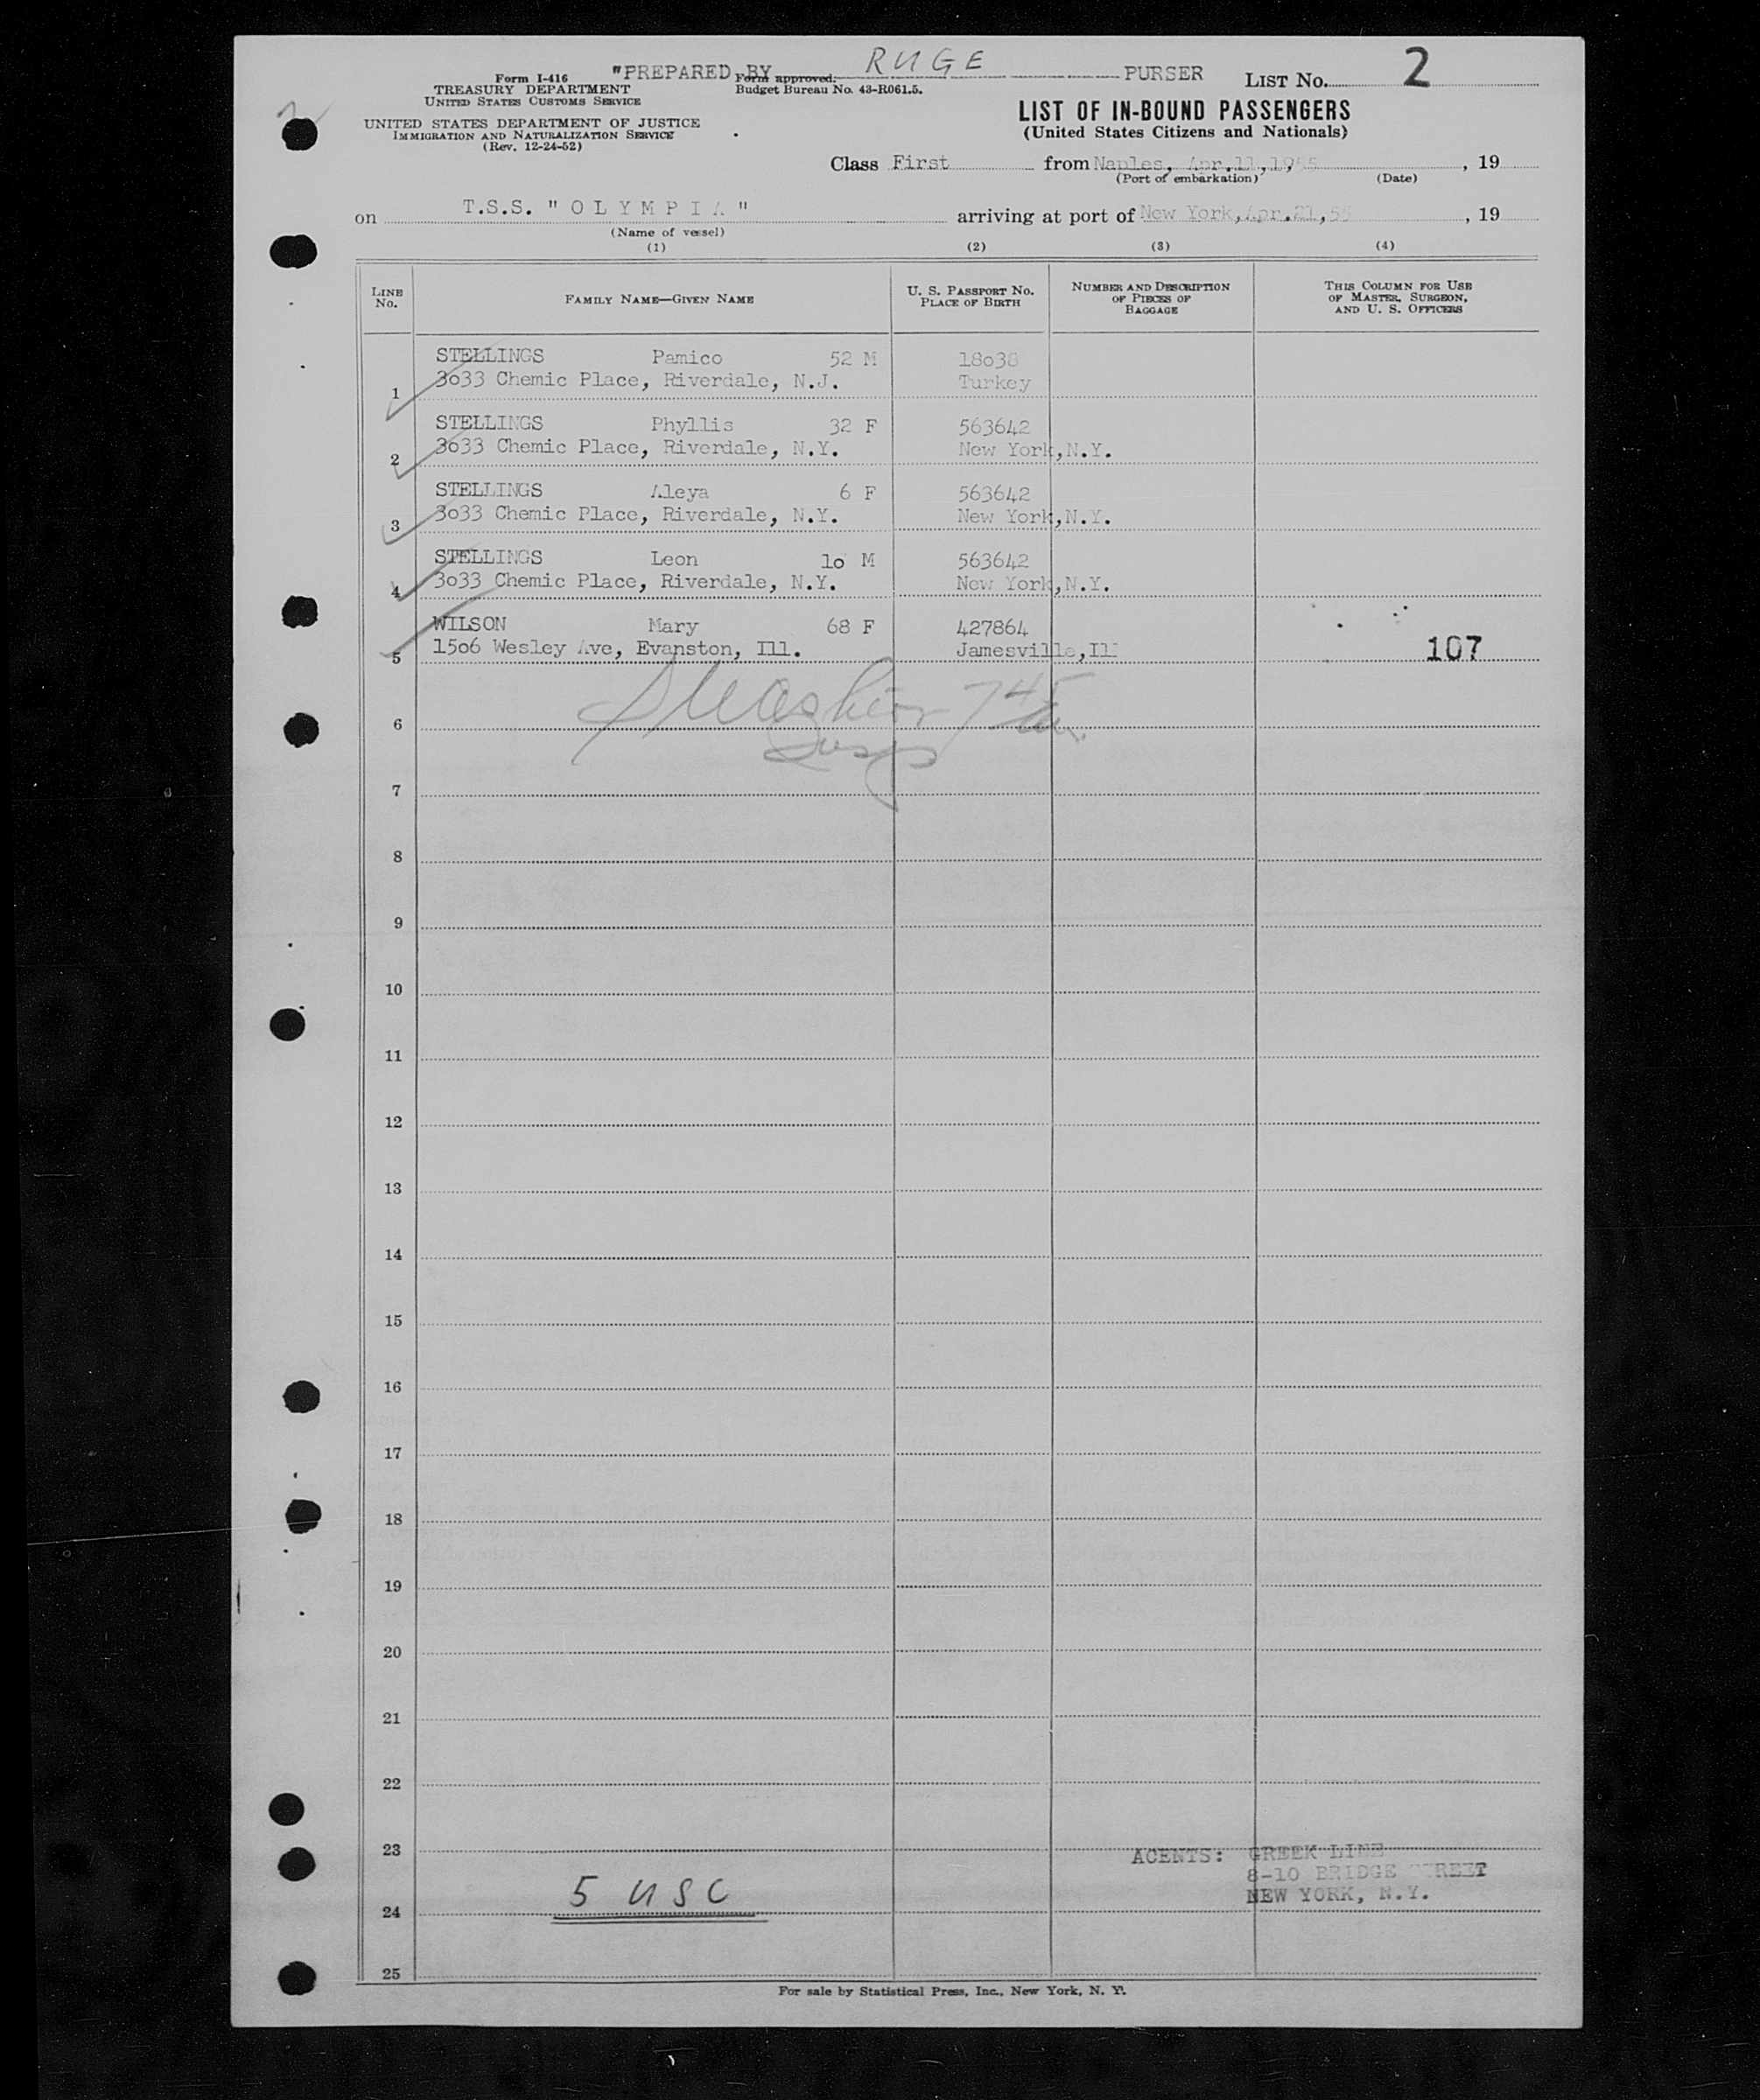 Form I-416 "PREPARED BY Form approved: RUGE PURSER LIST NO. 2
TREASURY DEPARTMENT Budget Bureau No. 43-R061.5.
UNITED STATES CUSTOMS SERVICE
LIST OF IN-BOUND PASSENGERS
UNITED STATES DEPARTMENT OF JUSTICE
IMMIGRATION AND NATURALIZATION SERVICE (United States Citizens and Nationals)
(Rev. 12-24-52)
Class First from Naples, Apr.11,1955 , 19
(Port of embarkation) (Date)
on T.S.S. "OLYMPIA" arriving at port of New York,Apr.21,55 , 19
(Name of vessel)
(1) (2) (3) (4)
LINE No. FAMILY NAME—GIVEN NAME U. S. PASSPORT NO. PLACE OF BIRTH NUMBER AND DESCRIPTION OF PIECES OF BAGGAGE THIS COLUMN FOR USE OF MASTER, SURGEON, AND U. S. OFFICERS
STELLINGS Pamico 52 M 18o38
1 3o33 Chemic Place, Riverdale, N.J. Turkey
STELLINGS Phyllis 32 F 563642
2 3o33 Chemic Place, Riverdale, N.Y. New York,N.Y.
STELLINGS Aleya 6 F 563642
3 3o33 Chemic Place, Riverdale, N.Y. New York,N.Y.
STELLINGS Leon lo M 563642
4 3o33 Chemic Place, Riverdale, N.Y. New York,N.Y.
WILSON Mary 68 F 427864
5 15o6 Wesley Ave, Evanston, Ill. Jamesville,Ill 107
6
7
8
9
10
11
12
13
14
15
16
17
18
19
20
21
22
23 AGENTS: GREEK LINE
8-10 BRIDGE STREET
5 USC NEW YORK, N.Y.
24
25
For sale by Statistical Press, Inc., New York, N. Y.